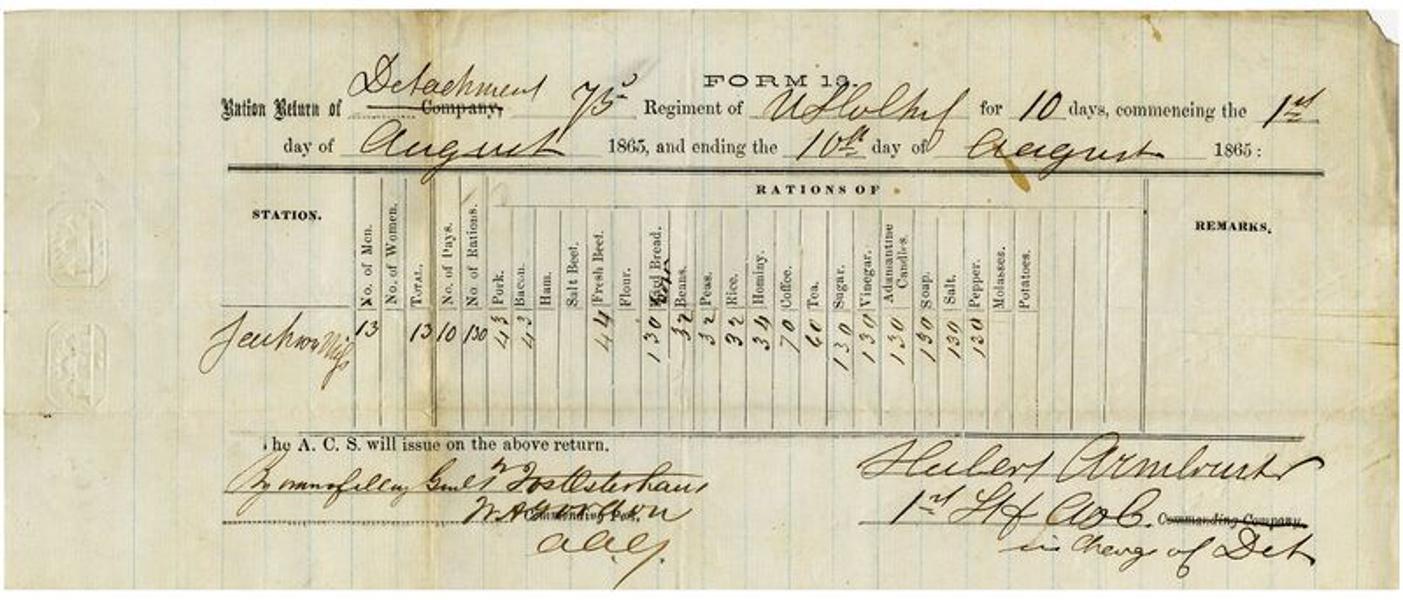 FORM 13.
Ration Return of Detachment Company, 75 Regiment of U S Col Inf for 10 days, commencing the 1st
day of August 1865, and ending the 10th day of August 1865:
RATIONS OF
STATION. No. of Men. No. of Women. TOTAL. No. of Days. No. of Rations. Pork. Bacon. Ham. Salt Beef. Fresh Beef. Flour. Hard Bread. Beans. Peas. Rice. Hominy. Coffee. Tea. Sugar. Vinegar. Adamantine Candles. Soap. Salt. Pepper. Molasses. Potatoes. REMARKS.
Jackson Miss 13 13 10 130 43 43 44 130 32 32 32 34 70 60 130 130 130 130 130 130
The A. C. S. will issue on the above return.
By command of Genl Osterhaus
W A Gordon Commanding Post.
A A G.
Hubert Armbruster
1st Lt Co C. Commanding Company,
in Charge of Det